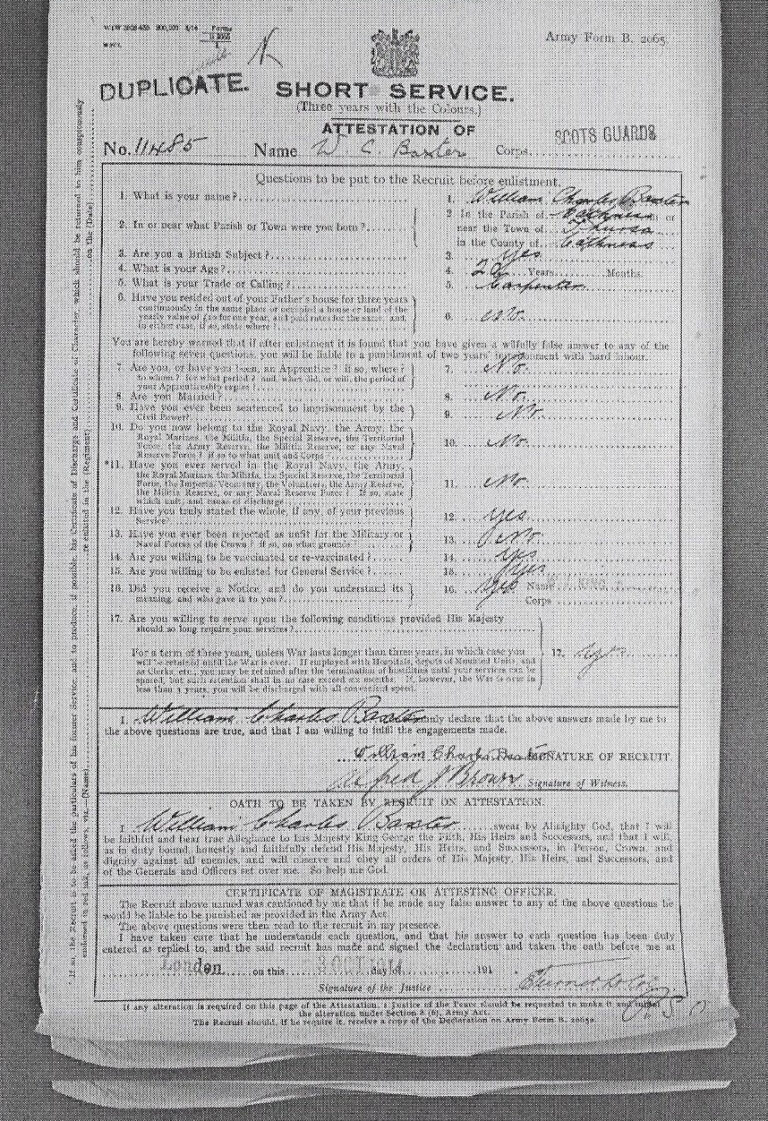 Forms
Army Form B. 2065.
DUPLICATE.
SHORT SERVICE.
(Three years with the Colours.)
ATTESTATION OF
No. 11485 Name W. C. Baxter Corps SCOTS GUARDS
Questions to be put to the Recruit before enlistment.
1. What is your name? 1. William Charles Baxter
2. In or near what Parish or Town were you born? 2 In the Parish of or
near the Town of Thurso
in the County of Caithness
3. Are you a British Subject? 3. Yes
4. What is your Age? 4. Years Months.
5. What is your Trade or Calling? 5. Carpenter
6. Have you resided out of your Father's house for three years
continuously in the same place or occupied a house or land of the
yearly value of £10 for one year, and paid rates for the same, and,
in either case, if so, state where? 6. No.
You are hereby warned that if after enlistment it is found that you have given a wilfully false answer to any of the
following seven questions, you will be liable to a punishment of two years' imprisonment with hard labour.
7. Are you, or have you been, an Apprentice? if so, where?
to whom? for what period? and, when did, or will, the period of
your Apprenticeship expire? 7. No.
8. Are you Married? 8. No.
9. Have you ever been sentenced to imprisonment by the
Civil Power? 9. No
10. Do you now belong to the Royal Navy, the Army, the
Royal Marines, the Militia, the Special Reserve, the Territorial
Force, the Army Reserve, the Militia Reserve, or any Naval
Reserve Force? if so to what unit and Corps 10. No.
*11. Have you ever served in the Royal Navy, the Army,
the Royal Marines, the Militia, the Special Reserve, the Territorial
Force, the Imperial Yeomanry, the Volunteers, the Army Reserve,
the Militia Reserve, or any Naval Reserve Force? If so, state
which unit, and cause of discharge 11. No.
12. Have you truly stated the whole, if any, of your previous
Service? 12. yes
13. Have you ever been rejected as unfit for the Military or
Naval Forces of the Crown? if so, on what grounds? 13. No
14. Are you willing to be vaccinated or re-vaccinated? 14. yes
15. Are you willing to be enlisted for General Service? 15. yes
16. Did you receive a Notice, and do you understand its
meaning, and who gave it to you? 16. yes Name KING
Corps
17. Are you willing to serve upon the following conditions provided His Majesty
should so long require your services?
For a term of three years, unless War lasts longer than three years, in which case you
will be retained until the War is over. If employed with Hospitals, depots of Mounted Units, and
as Clerks, etc., you may be retained after the termination of hostilities until your services can be
spared, but such retention shall in no case exceed six months. If, however, the War is over in
less than 3 years, you will be discharged with all convenient speed. 17. yes
I, William Charles Baxter solemnly declare that the above answers made by me to
the above questions are true, and that I am willing to fulfil the engagements made.
William Charles Baxter SIGNATURE OF RECRUIT.
Alfred J Brown Signature of Witness.
OATH TO BE TAKEN BY RECRUIT ON ATTESTATION.
I William Charles Baxter swear by Almighty God, that I will
be faithful and bear true Allegiance to His Majesty King George the Fifth, His Heirs and Successors, and that I will,
as in duty bound, honestly and faithfully defend His Majesty, His Heirs, and Successors, in Person, Crown, and
dignity against all enemies, and will observe and obey all orders of His Majesty, His Heirs, and Successors, and
of the Generals and Officers set over me. So help me God.
CERTIFICATE OF MAGISTRATE OR ATTESTING OFFICER.
The Recruit above named was cautioned by me that if he made any false answer to any of the above questions he
would be liable to be punished as provided in the Army Act.
The above questions were then read to the recruit in my presence.
I have taken care that he understands each question, and that his answer to each question has been duly
entered as replied to, and the said recruit has made and signed the declaration and taken the oath before me at
London on this 3 OCT 1914 day of 191
Signature of the Justice
If any alteration is required on this page of the Attestation, a Justice of the Peace should be requested to make it and initial
the alteration under Section 8 (6), Army Act.
The Recruit should, if he require it, receive a copy of the Declaration on Army Form B. 2065a.
* If so, the Recruit is to be asked the particulars of his former Service, and to produce, if possible, his Certificate of Discharge and Certificate of Character, which should be returned to him conspicuously
endorsed in red ink, as follows, viz.—(Name) re-enlisted in the (Regiment) on the (Date)